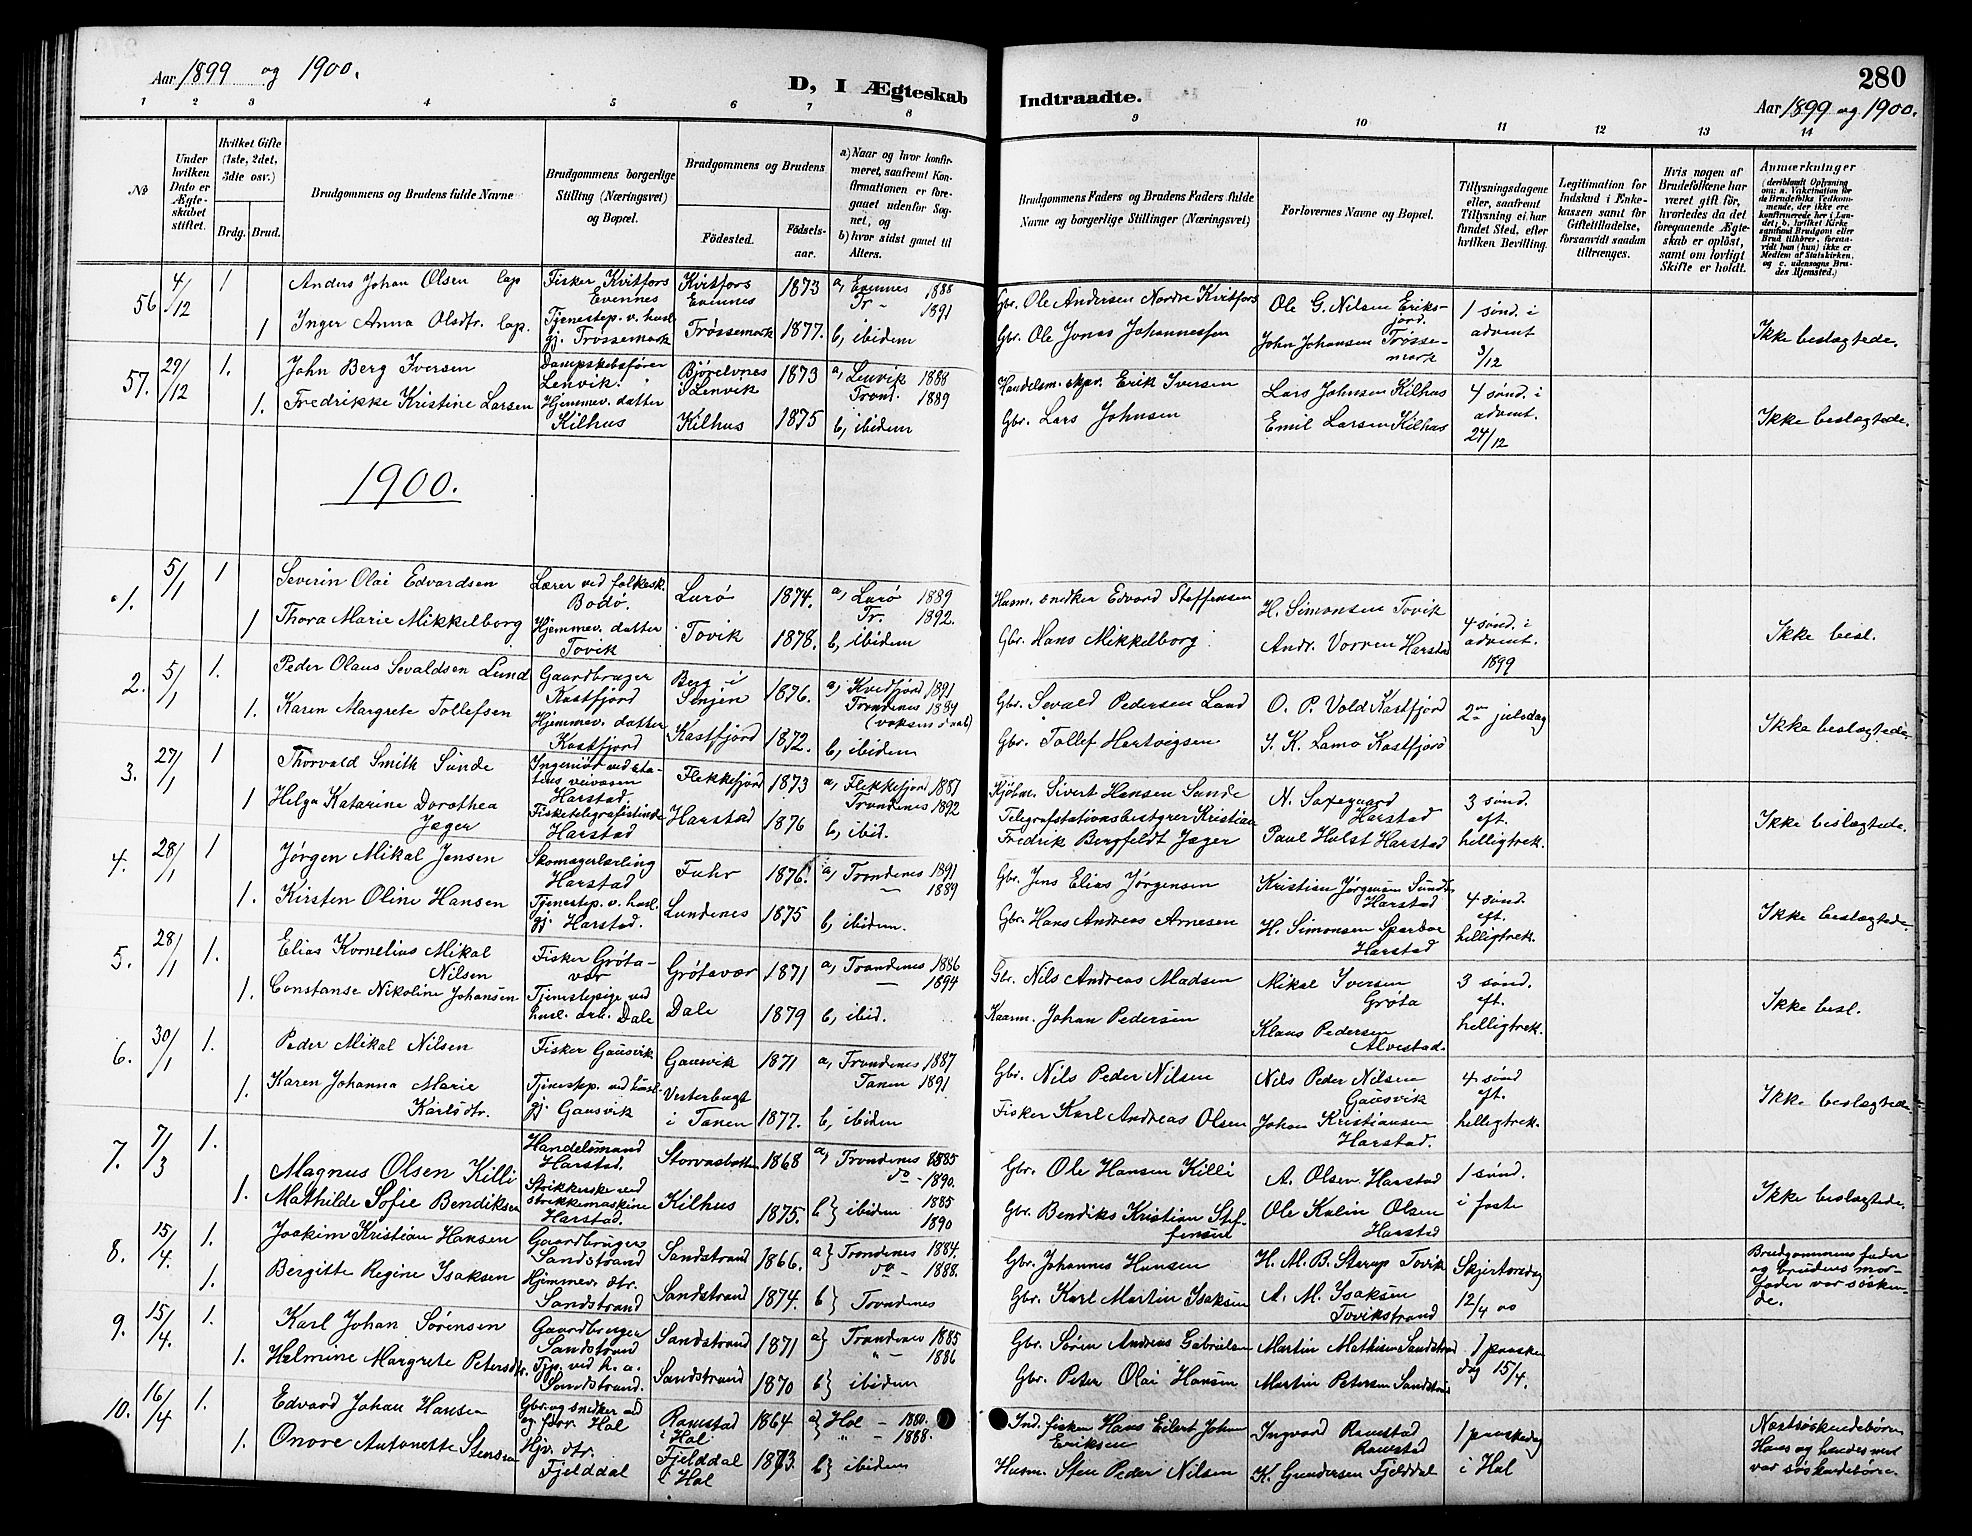 Aar 1899 og 1900.
D, I Ægteskab
Indtraadte.
280
Aar 1899 og 1900.
1 2 3 4 5 6 7 8 9 10 11 12 13 14
No
Under hvilken Dato er Ægteskabet stiftet.
Hvilket Gifte (1ste, 2det, 3die osv.)
Brdg. Brud.
Brudgommens og Brudens fulde Navne
Brudgommens borgerlige Stilling (Næringsvei) og Bopæl.
Brudgommens og Brudens
Fødested.
Fødselsaar.
a) Naar og hvor konfirmeret, saafremt Konfirmationen er foregaaet udenfor Sognet, og
b) hvor sidst gaaet til Alters.
Brudgommens Faders og Brudens Faders fulde Navne og borgerlige Stillinger (Næringsvei)
Forlovernes Navne og Bopæl.
Tillysningsdagene eller, saafremt Tillysning ei har fundet Sted, efter hvilken Bevilling.
Legitimation for Indskud i Enkekassen samt for Giftetilladelse, forsaavidt saadan tiltrænges.
Hvis nogen af Brudefolkene har været gift før, hvorledes da det foregaaende Ægteskab er opløst, samt om lovligt Skifte er holdt.
Anmærkninger
(deriblandt Oplysning om: a. Vakcination for de Brudefolks Vedkommende, der ikke ere konfirmerede her i Landet; b. hvilket Kirkesamfund Brudgom eller Brud tilhører, forsaavidt han (hun) ikke er Medlem af Statskirken, og c. udensogns Brudes Hjemsted.)
56 4/12 1 Anders Johan Olsen lap Fisker Kvitfors Evennes Kvitfors Evennes 1873 a, Evennes 1888 Gbr. Ole Andersen Nordre Kvitfors Ole G. Nilsen Eriksjord. 1 sønd. i advent 3/12
1 Inger Anna Olsdtr. lap. Tjenestep. v. husl. gj. Trøssemark Trøssemark 1877. Tr. - 1891 b, ibidem Gbr. Ole Jonas Johannessen John Johansen Trøssemark Ikke beslægtede.
57. 29/12 1. John Berg Iversen Dampskibsfører Lenvik. Bjørelvnes i Lenvik 1873 a, Lenvik 1888 Handelsm. Erik Iversen Lars Johnsen Kilhus 4 sønd. i advent. 24/12
1. Fredrikke Kristine Larsen Hjemmev. datter Kilhus Kilhus 1875 Trond. 1889 b, ibidem Gbr. Lars Johnsen Emil Larsen Kilhus Ikke beslægtede.
1900.
1. 5/1 1 Severin Olai Edvardsen Lærer ved folkesk. Bodø. Lurø 1874. a, Lurø 1889 Husm. snedker Edvard Steffensen H. Simonsen Tovik 4 sønd. i advent. 1899
1 Thora Marie Mikkelborg Hjemmev. datter Tovik Tovik 1878. Tr. 1892. b, ibidem Gbr. Hans Mikkelborg Andr. Vorren Harstad Ikke besl.
2. 5/1 1. Peder Olaus Sevaldsen Lund Gaardbruger Kastfjord Berg i Senjen 1876. a, Kvedfjord 1891 Gbr. Sevald Pedersen Lund O. P. Vold Kastfjord 2den juledag
1. Karen Margrete Tollefsen Hjemmev. datter Kastfjord Kastfjord 1872. Trondenes 1884 (voksen daab) b, ibidem Gbr. Tollef Hertvigsen Kastfjord Ikke beslægtede.
3. 27/1 1 Thorvald Smith Sunde Ingeniør ved statens veivæsen Harstad. Flekkefjord 1873 a, Flekkefjord 1887 Kjøbm. Sivert Hansen Sunde N. Saxegaard Harstad 3 sønd. eft. helligtrek.
1 Helga Katarine Dorothea Jæger Fisketelegrafistinde Harstad Harstad 1876 Trondenes 1892 b, ibid. Telegrafstationsbestyrer Kristian Fredrik Bergfeldt Jæger Paul Holst Harstad Ikke beslægtede.
4. 28/1 1 Jørgen Mikal Jensen Skomagerlærling Harstad 1876. a, Trondenes 1891 Gbr. Jens Elias Jørgensen Kristian Jørgensen Harstad 4 sønd. eft. helligtrek.
1. Kirsten Oline Hansen Tjenestep. v. husl. gj. Harstad. Lundenes 1875 1889 b, ibidem. Gbr. Hans Andreas Arnesen H. Simonsen Sparboe Harstad Ikke beslægtede.
5. 28/1 1. Elias Kornelius Mikal Nilsen Fisker Grøtavær Grøtavær 1871 a, Trondenes 1886 Gbr. Nils Andreas Madsen Mikal Iversen Grøta 3 sønd. eft. helligtrek.
1. Constanse Nikoline Johansen Tjenestepige ved husl. arb. Dale Dale 1879 1894 b, ibid. Johan Pedersen Klaus Pedersen Alvestad. Ikke besl.
6. 30/1 1. Peder Mikal Nilsen Fisker Gausvik Gausvik 1871 a, Trondenes 1887 Gbr. Nils Peder Nilsen Nils Peder Nilsen Gausvik 4 sønd eft. helligtrek.
1. Karen Johanna Marie Karlsdtr. Tjenestep. ved husl. gj. Gausvik Vesterbugt i Tanen 1877. Tanen 1891 b, ibidem Fisker Karl Andreas Olsen Johan Kristiansen Harstad. Ikke beslægtede
7. 7/3 1. Magnus Olsen Killi Handelsmand Harstad. Storvasbotten 1868 a, Trondenes 1885 Gbr. Ole Hansen Killi A. Olsen Harstad 1 sønd. i faste
1. Mathilde Sofie Bendiksen Strikkerske ved strikkemaskine Harstad. Kilhus 1875. do - 1890. b} ibidem 1885 1890 Gbr. Bendiks Kristian Steffensen Ole Kalin Olsen Harstad Ikke beslægtede.
8. 15/4. 1. Joakim Kristian Hansen Gaardbruger Sandstrand Sandstrand 1866. a} Trondenes 1884. Gbr. Johannes Hansen H. M. B. Sterup Tovik Skjertorsdag 12/4 00 Brudgommens fader og brudens morfader var søskende.
1. Bergitte Regine Isaksen Hjemmev. dtr. Sandstrand Sandstrand 1874. do - 1888. b} Trondenes Gbr. Karl Martin Isaksen A. M. Isaksen Tovikstrand
9. 15/4. 1. Karl Johan Sørensen Gaardbruger Sandstrand Sandstrand 1871 a} Trondenes 1885 Gbr. Søren Andreas Gabrielsen Martin Mathisen Sandstrand 1 paaskedag 15/4.
1. Halmine Margrete Petersdtr. Tjp. ved h. a. Sandstrand. Sandstrand 1870 " - 1886 b} ibidem Gbr. Peter Olai Hansen Martin Petersen Sandstrand
10. 16/4 1. Edvard Johan Hansen Gbr. og snedker Hol Ramstad i Hol 1864 a} Hol - 1880. Ind. fisker Hans Eilert Johan Eriksen Ingvard Ramstad Ramstad 1 paaskedag i Hol Næstsøskendebørn Hans og hendes var søskendebørn.
1. Onore Antonette Stensen Hjv. dtr. Fjelddal Fjelddal i Hol 1873. " - 1888. b} ibidem Husm. Sten Peder Nilsen K. Gundersen Fjelddal